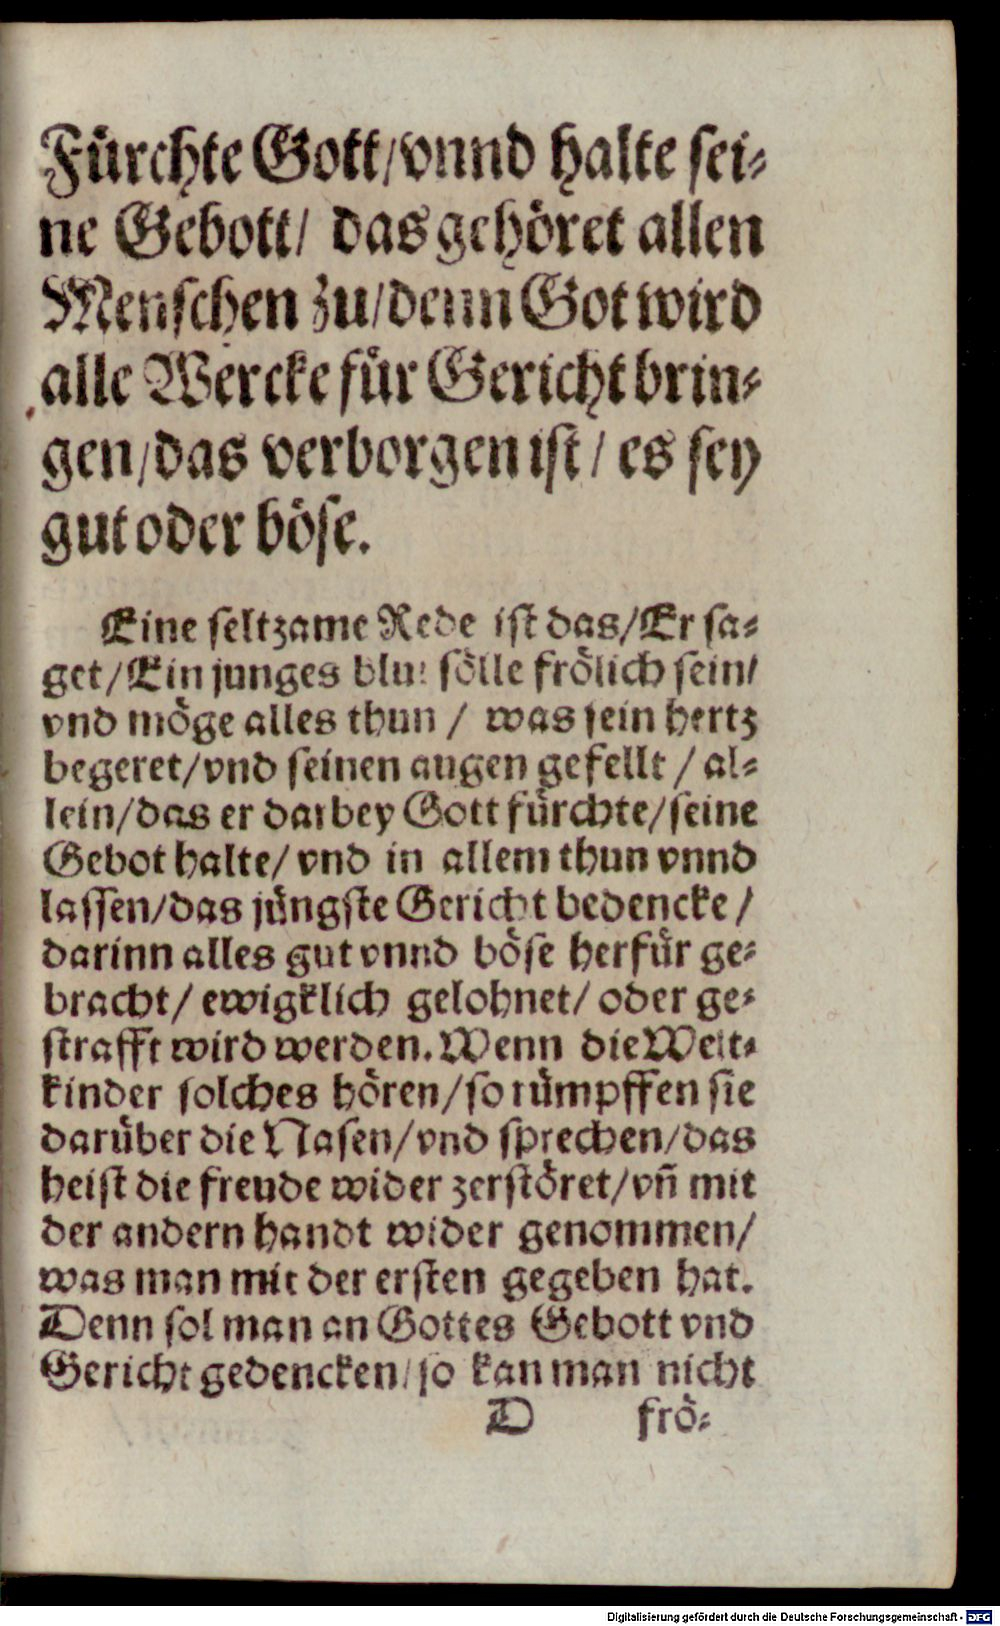 Fürchte Gott/vnnd halte sei⸗
ne Gebott/ das gehöret allen
Menschen zu/denn Got wird
alle Wercke für Gericht brin⸗
gen/das verborgen ist/ es sey
gut oder böse.
Eine seltzame Rede ist das/Er sa⸗
get/Ein junges blut sölle frölich sein/
vnd möge alles thun / was sein hertz
begeret/vnd seinen augen gefellt / al⸗
lein/das er darbey Gott fürchte/seine
Gebot halte/ vnd in allem thun vnnd
lassen/das jüngste Gericht bedencke /
darinn alles gut vnnd böse herfür ge⸗
bracht/ ewigklich gelohnet/ oder ge⸗
strafft wird werden. Wenn die Welt⸗
kinder solches hören/so rümpffen sie
darüber die Nasen/vnd sprechen/das
heist die freude wider zerstöret/vn̄ mit
der andern handt wider genommen/
was man mit der ersten gegeben hat.
Denn sol man an Gottes Gebott vnd
Gericht gedencken/so kan man nicht
D frö⸗
Digitalisierung gefördert durch die Deutsche Forschungsgemeinschaft - DFG